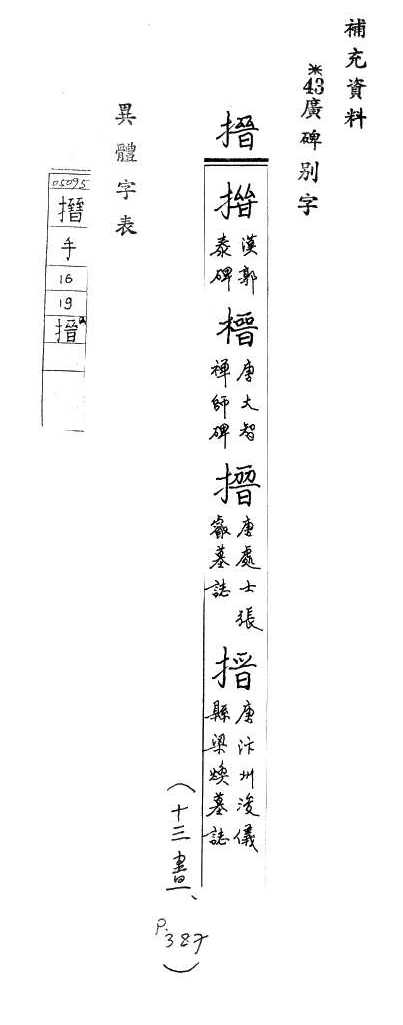 補充資料
※43廣碑別字
搢
漢郭
泰碑
唐大智
禪師碑
唐處士張
叡墓誌
唐汴州浚儀
縣梁煥墓誌
(十三畫、
P.387)
異體字表
05095
手
16
19
搢